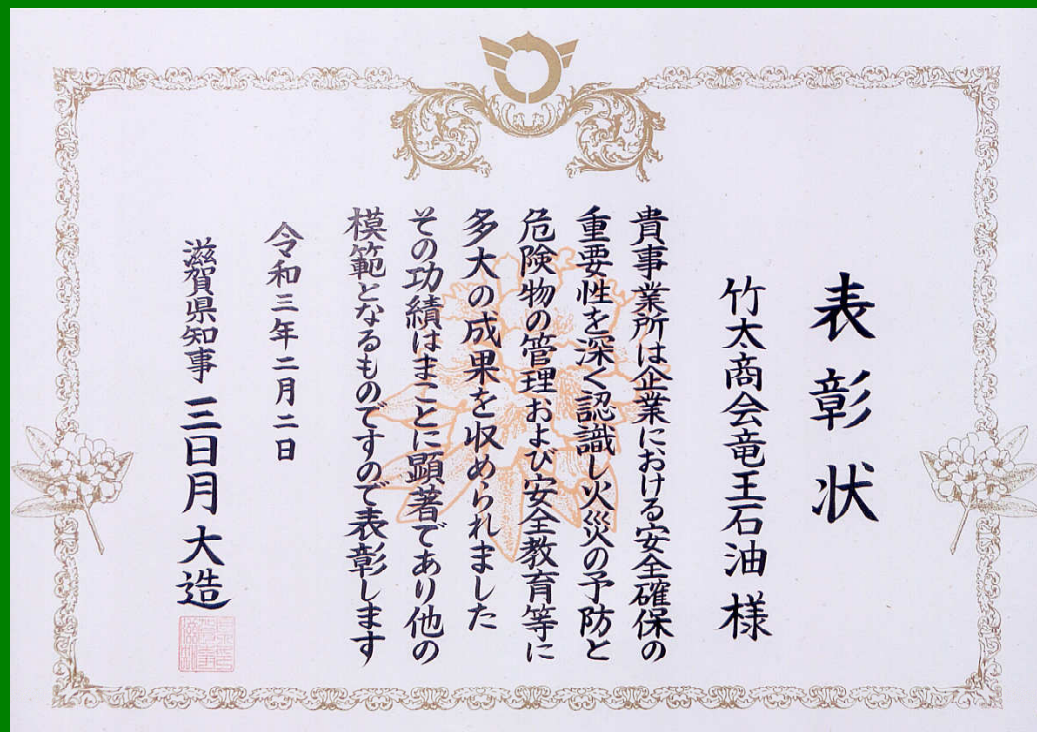 表彰状
竹太商会竜王石油様
貴事業所は企業における安全確保の
重要性を深く認識し火災の予防と
危険物の管理および安全教育等に
多大の成果を収められました
その功績はまことに顕著であり他の
模範となるものですので表彰します
令和三年二月二日
滋賀県知事 三日月大造